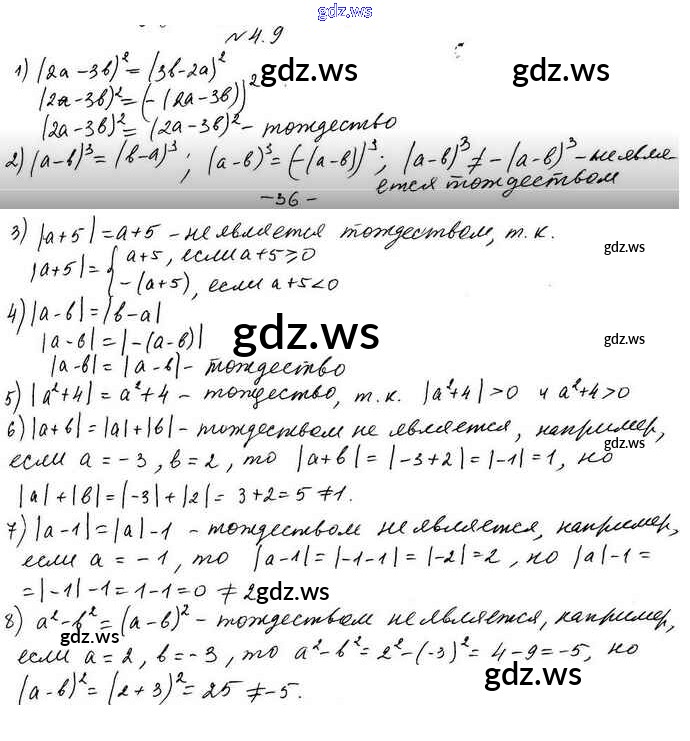 gdz.ws
№ 4.9
1) (2a-3b)² = (3b-2a)²
(2a-3b)² = (-(2a-3b))²
(2a-3b)² = (2a-3b)² - тождество
gdz.ws
2) (a-b)³ = (b-a)³; (a-b)³ = (-(a-b))³; (a-b)³ ≠ -(a-b)³ - не явля
ется тождеством
-36-
3) |a+5| = a+5 - не является тождеством, т.к.
gdz.ws
|a+5| = { a+5, если a+5⩾0
-(a+5), если a+5<0
4) |a-b| = |b-a|
|a-b| = |-(a-b)|
gdz.ws
gdz.ws
|a-b| = |a-b| - тождество
5) |a²+4| = a²+4 - тождество, т.к. |a²+4|>0 и a²+4>0
6) |a+b| = |a|+|b| - тождеством не является, например,
gdz.ws
если a = -3, b = 2, то |a+b| = |-3+2| = |-1| = 1, но
|a|+|b| = |-3|+|2| = 3+2 = 5 ≠ 1.
7) |a-1| = |a|-1 - тождеством не является, например,
если a = -1, то |a-1| = |-1-1| = |-2| = 2, но |a|-1 =
= |-1|-1 = 1-1 = 0 ≠ 2
gdz.ws
8) a²-b² = (a-b)² - тождеством не является, например,
gdz.ws
если a = 2, b = -3, то a²-b² = 2²-(-3)² = 4-9 = -5, но
(a-b)² = (2+3)² = 25 ≠ -5.
gdz.ws